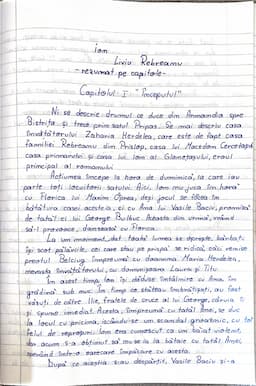 Ion
Liviu Rebreanu
- rezumat pe capitole -
Capitolul I: "Începutul"
Ni se descrie drumul ce duce din Armadia spre
Bistrița și trece prin satul Pripas. Se mai descriu casa
învățătorului Zaharia Herdelea, care este de fapt casa
familiei Rebreanu din Prislop, casa lui Macedon Cercetașu,
casa primarului și casa lui Ion al Glanetașului, eroul
principal al romanului.
Acțiunea începe la hora de duminică, la care iau
parte toți locuitorii satului. Aici, Ion mu joca în hora
cu Florica lui Maxim Oprea, deși jocul se făcea în
bătătura casei acesteia, ci cu Ana lui Vasile Baciu, promisă
de tatăl ei lui George Bulbuc. Acesta din urmă, vrând
să-l provoace, dansează cu Florica.
La un moment dat, toată lumea se oprește, bărbații
își scot pălăriile, cei care stau pe prispă se ridică, căci venise
preotul Belciug împreună cu doamna Maria Herdelea,
nevasta învățătorului, cu domnișoara Laura și Titu.
În acest timp, Ion își dăduse întâlnire cu Ana, în
grădină sub nuc. În timp ce stăteau îmbrățișați, au fost
văzuți de către Ilie, fratele de cruce al lui George, căruia îi
și spune imediat. Acesta, împreună cu tatăl Anei, se duc
la locul cu pricina, iscându-se un scandal groaznic, cu tot
felul de reproșuri. Ion era cunoscut ca un băiat violent,
dar acum s-a abținut să nu se ia la bătaie cu tatăl Anei,
sperând într-o oarecare împăcare cu acesta.
După ce aceștia s-au despărțit, Vasile Baciu și-a